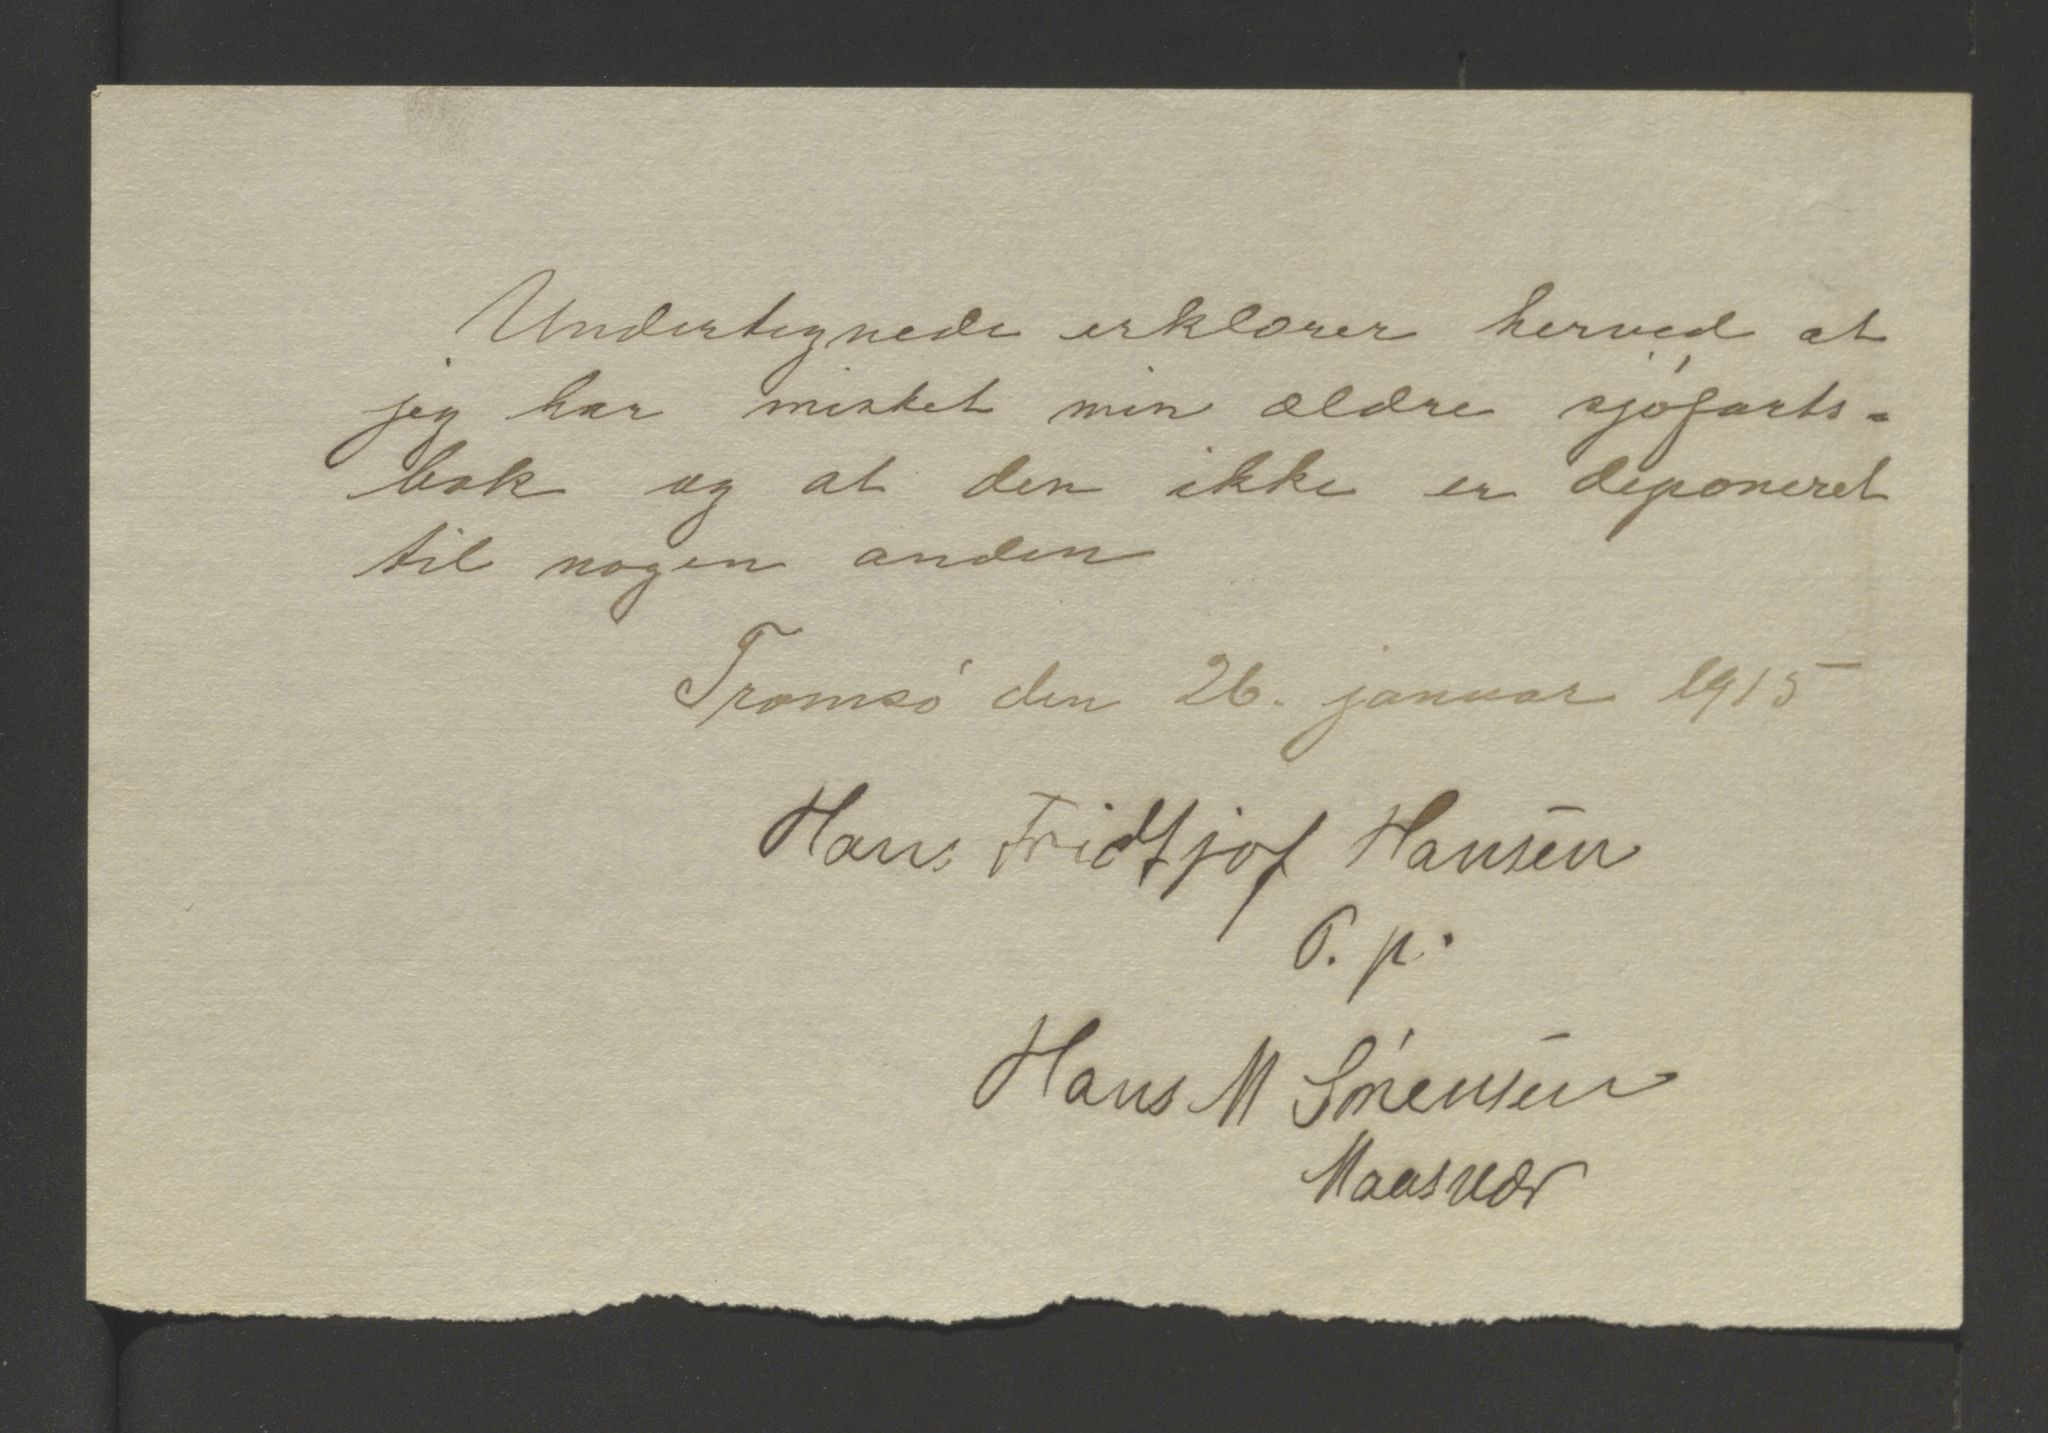 Undertegnede erklærer herved at
jeg har mistet min ældre sjøfarts-
bok og at den ikke er deponeret
til nogen anden
Tromsø den 26. januar 1915
Hans Fridtjof Hansen
P. p.
Hans M Sørensen
Maasvær